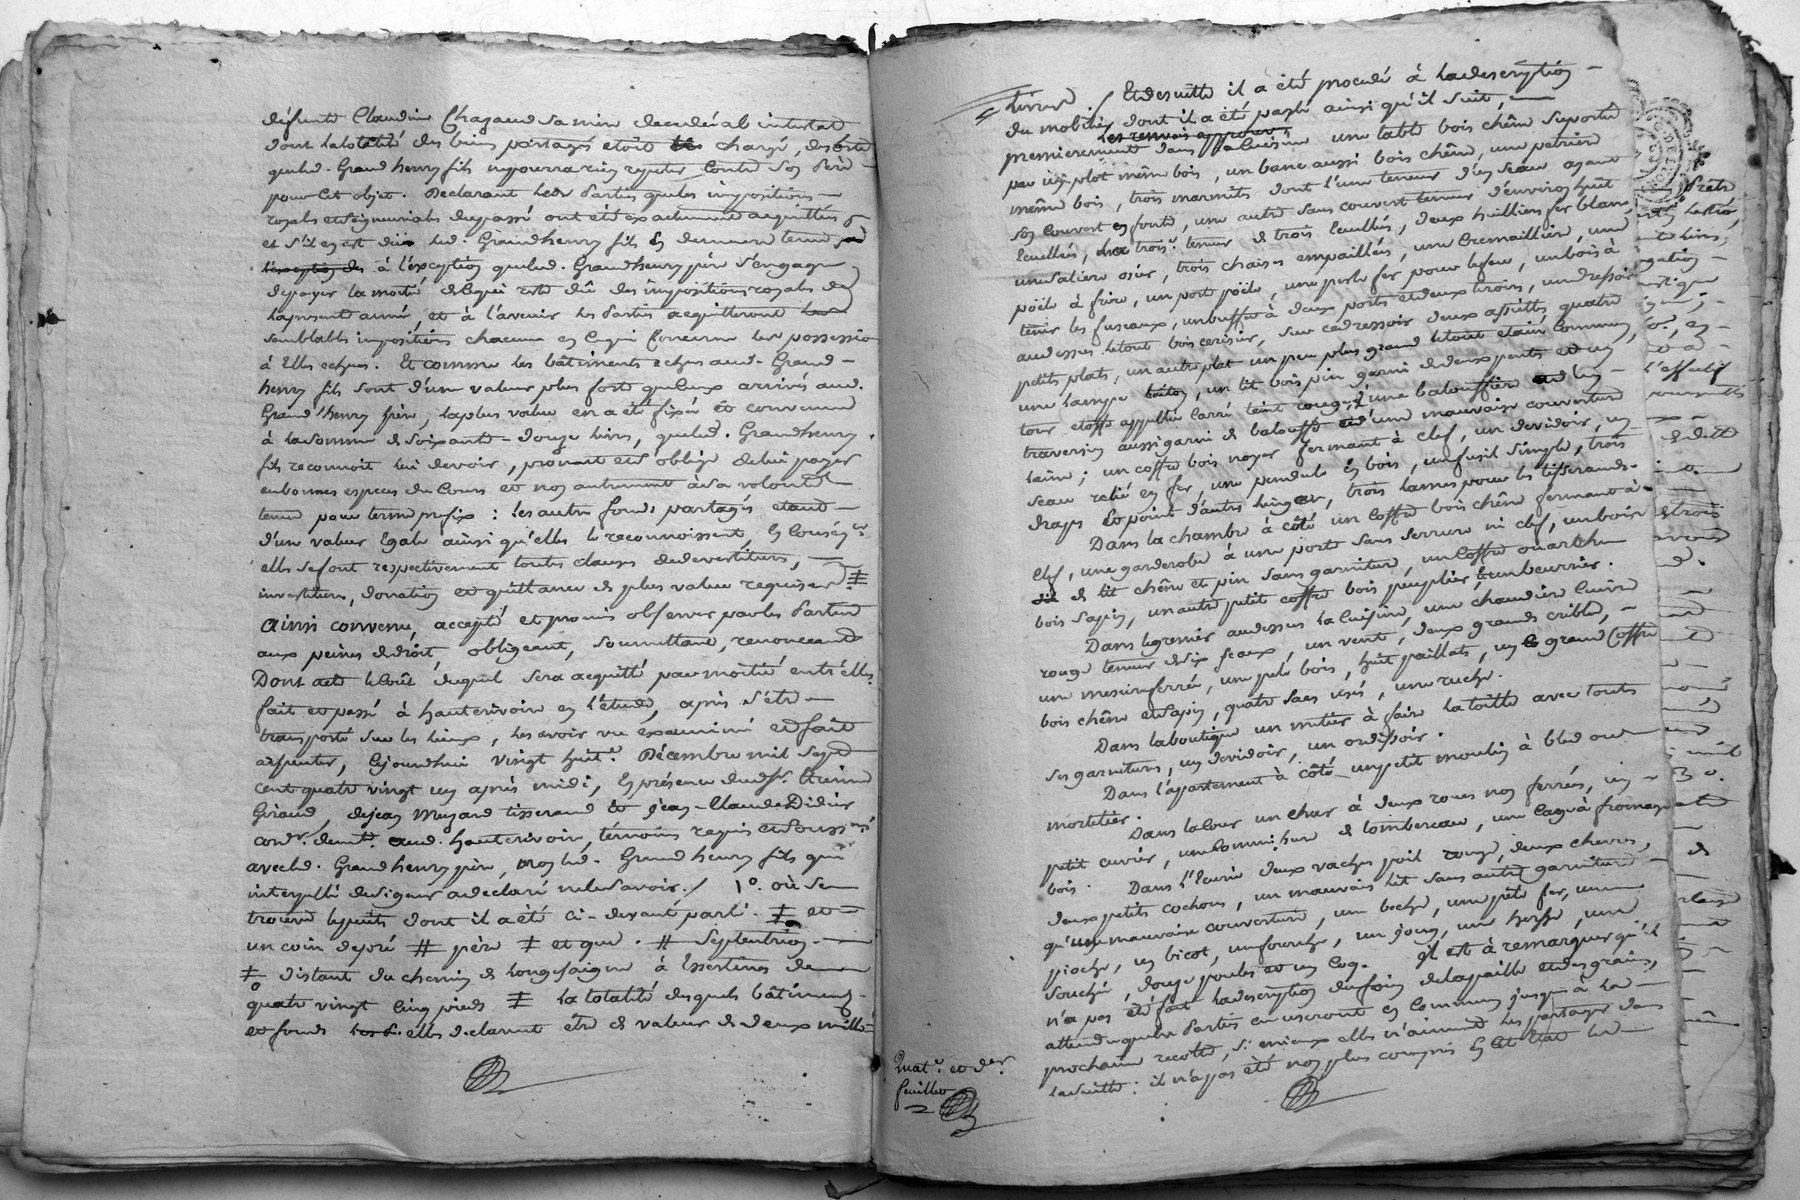 défunte Claudine Chagaud sa mère decedée ab intestat
dont la totalité des biens partagés etoit chargé, desorte
que led. Grandhenry fils ne pourra rien repeter contre son père
pour cet objet. Declarant lesd. Parties que les impositions
royales et seigneuriales du passé ont été exactement acquittées
et s'il en est dû led. Grandhenry fils en demeure tenu
à l'exception que led. Grandhenry père s'engage
de payer la moitié de ce qui reste dû des impositions royales de
la presente année, et à l'avenir les Parties acquitteront les
semblables impositions chacune en ce qui concerne les possessions
à elles echues. Et comme les bâtiments echus aud. Grand-
henry fils sont d'une valeur plus forte que ceux arrivés aud.
Grand'henry père, la plus value en a été fixée et convenue
à la somme de soixante-douze livres, que led. Grandhenry
fils reconnoit lui devoir, promet et s'oblige de lui payer
en bonnes especes du cours et non autrement à sa volonté
tenue pour terme prefix : les autres fonds partagés etant
d'une valeur egale ainsi qu'elles le reconnoissent, en conséq.ce
elles se font respectivement toutes clauses de devestiture,
investiture, donation et quittance de plus value requises ⧧
Ainsi convenu, accepté et promis observer par les Parties
aux peines de droit, obligeant, soumettant, renonceant
Dont acte le coût duquel sera acquitté par moitié entr'elles.
fait et passé à hauterivoire en l'étude, après s'être
transporté sur les lieux, les avoir vu examiné et fait
arpenter, cejourdhui vingt huit.e Décembre mil sept
cent quatre vingt un après midi, en présence dud. sr. Etienne
Giraud, de Jean Mugand tisserand et Jean-Claude Didier
cord.r demt. aud. hauterivoire, témoins requis et soussignés
avec led. Grandhenry père, non led. Grand henry fils qui
interpellé de signer a declaré ne le savoir. / 1°. où se
trouve le puits dont il a été ci-devant parlé. ⧧ et
un coin de pré # père ⧧ et que. # Septentrion.
⧧ distant du chemin de Longesaigne à Essertines de
quatre vingt cinq pieds ⧧ la totalité desquels bâtiments
et fonds elles declarent être de valeur de deux mille
livres / Et de suitte il a été procedé à la description
du mobilier dont il a été parlé ainsi qu'il suit,
les renvois approuvés
premierement dans la Cuisine une table bois chêne suportée
par un plot même bois, un banc aussi bois chêne, une petrière
même bois, trois marmites dont l'une teneur d'un seau ayant
son couvert en fonte, une autre sans couvert teneur d'environ huit
ecuellées, la trois.e teneur de trois ecuellées, deux huilliers fer blanc,
une saliere osier, trois chaises empaillées, une cremaillière, une
poële à frire, un porte poële, une perle fer pour le feu, un bois à
tenir les fuseaux, un buffet à deux portes et deux tiroirs, un dressoir
au dessus le tout bois cerisier, sur ce dressoir deux assiettes quatre
petits plats, un autre plat un peu plus grand le tout etain commun,
une lampe laiton, un lit bois pin garni de deux pents et un
tour etoffe appellée carré teint rouge, une balouffière et un
traversin aussi garni de balouffe et d'une mauvaise couverture
laine; un coffre bois noyer fermant à clef, un devidoir, un
seau relié en fer, une pendule en bois, un fusil simple, trois
draps et point d'autre linge, trois lames pour les tisserands.
Dans la chambre à côté un coffre bois chêne fermant à
clef, une garderobe à une porte sans serrure ni clef, un bois
de lit chêne et pin sans garniture, un coffre ou arche
bois sapin, un autre petit coffre bois peuplier, et un beurrier.
Dans le grenier au dessus la Cuisine, une chaudière cuivre
rouge teneur de six seaux, un vent, deux grands cribles,
une mesure ferrée, une pele bois, huit paillats, un grand Coffre
bois chêne et sapin, quatre sacs usés, une ruche.
Dans la boutique un metier à faire la toille avec toutes
ses garnitures, un devidoir, un ordissoir.
Dans l'appartement à côté un petit moulin à bled ou
mortetier.
Dans la Cour un char à deux roues non ferrées, un
petit cuvier, un commichure de tombereau, une cage à fromage
bois. Dans l'Ecurie deux vaches poil rouge, deux chevres,
deux petits cochons, un mauvais lit sans autre garniture
qu'une mauvaise couverture, une beche, une pele fer, une
pioche, un bicot, une fourche, un joug, une herse, une
souche, douze poules et un coq. Il est à remarquer qu'il
n'a pas été fait la description du foin de la paille et des grains,
attendu que les Parties en useront en commun jusques à la
prochaine recolte, si mieux elles n'aiment les partager dans
la suitte : il n'a pas été non plus compris en cet etat led
Quat.e et d.er
feuillet